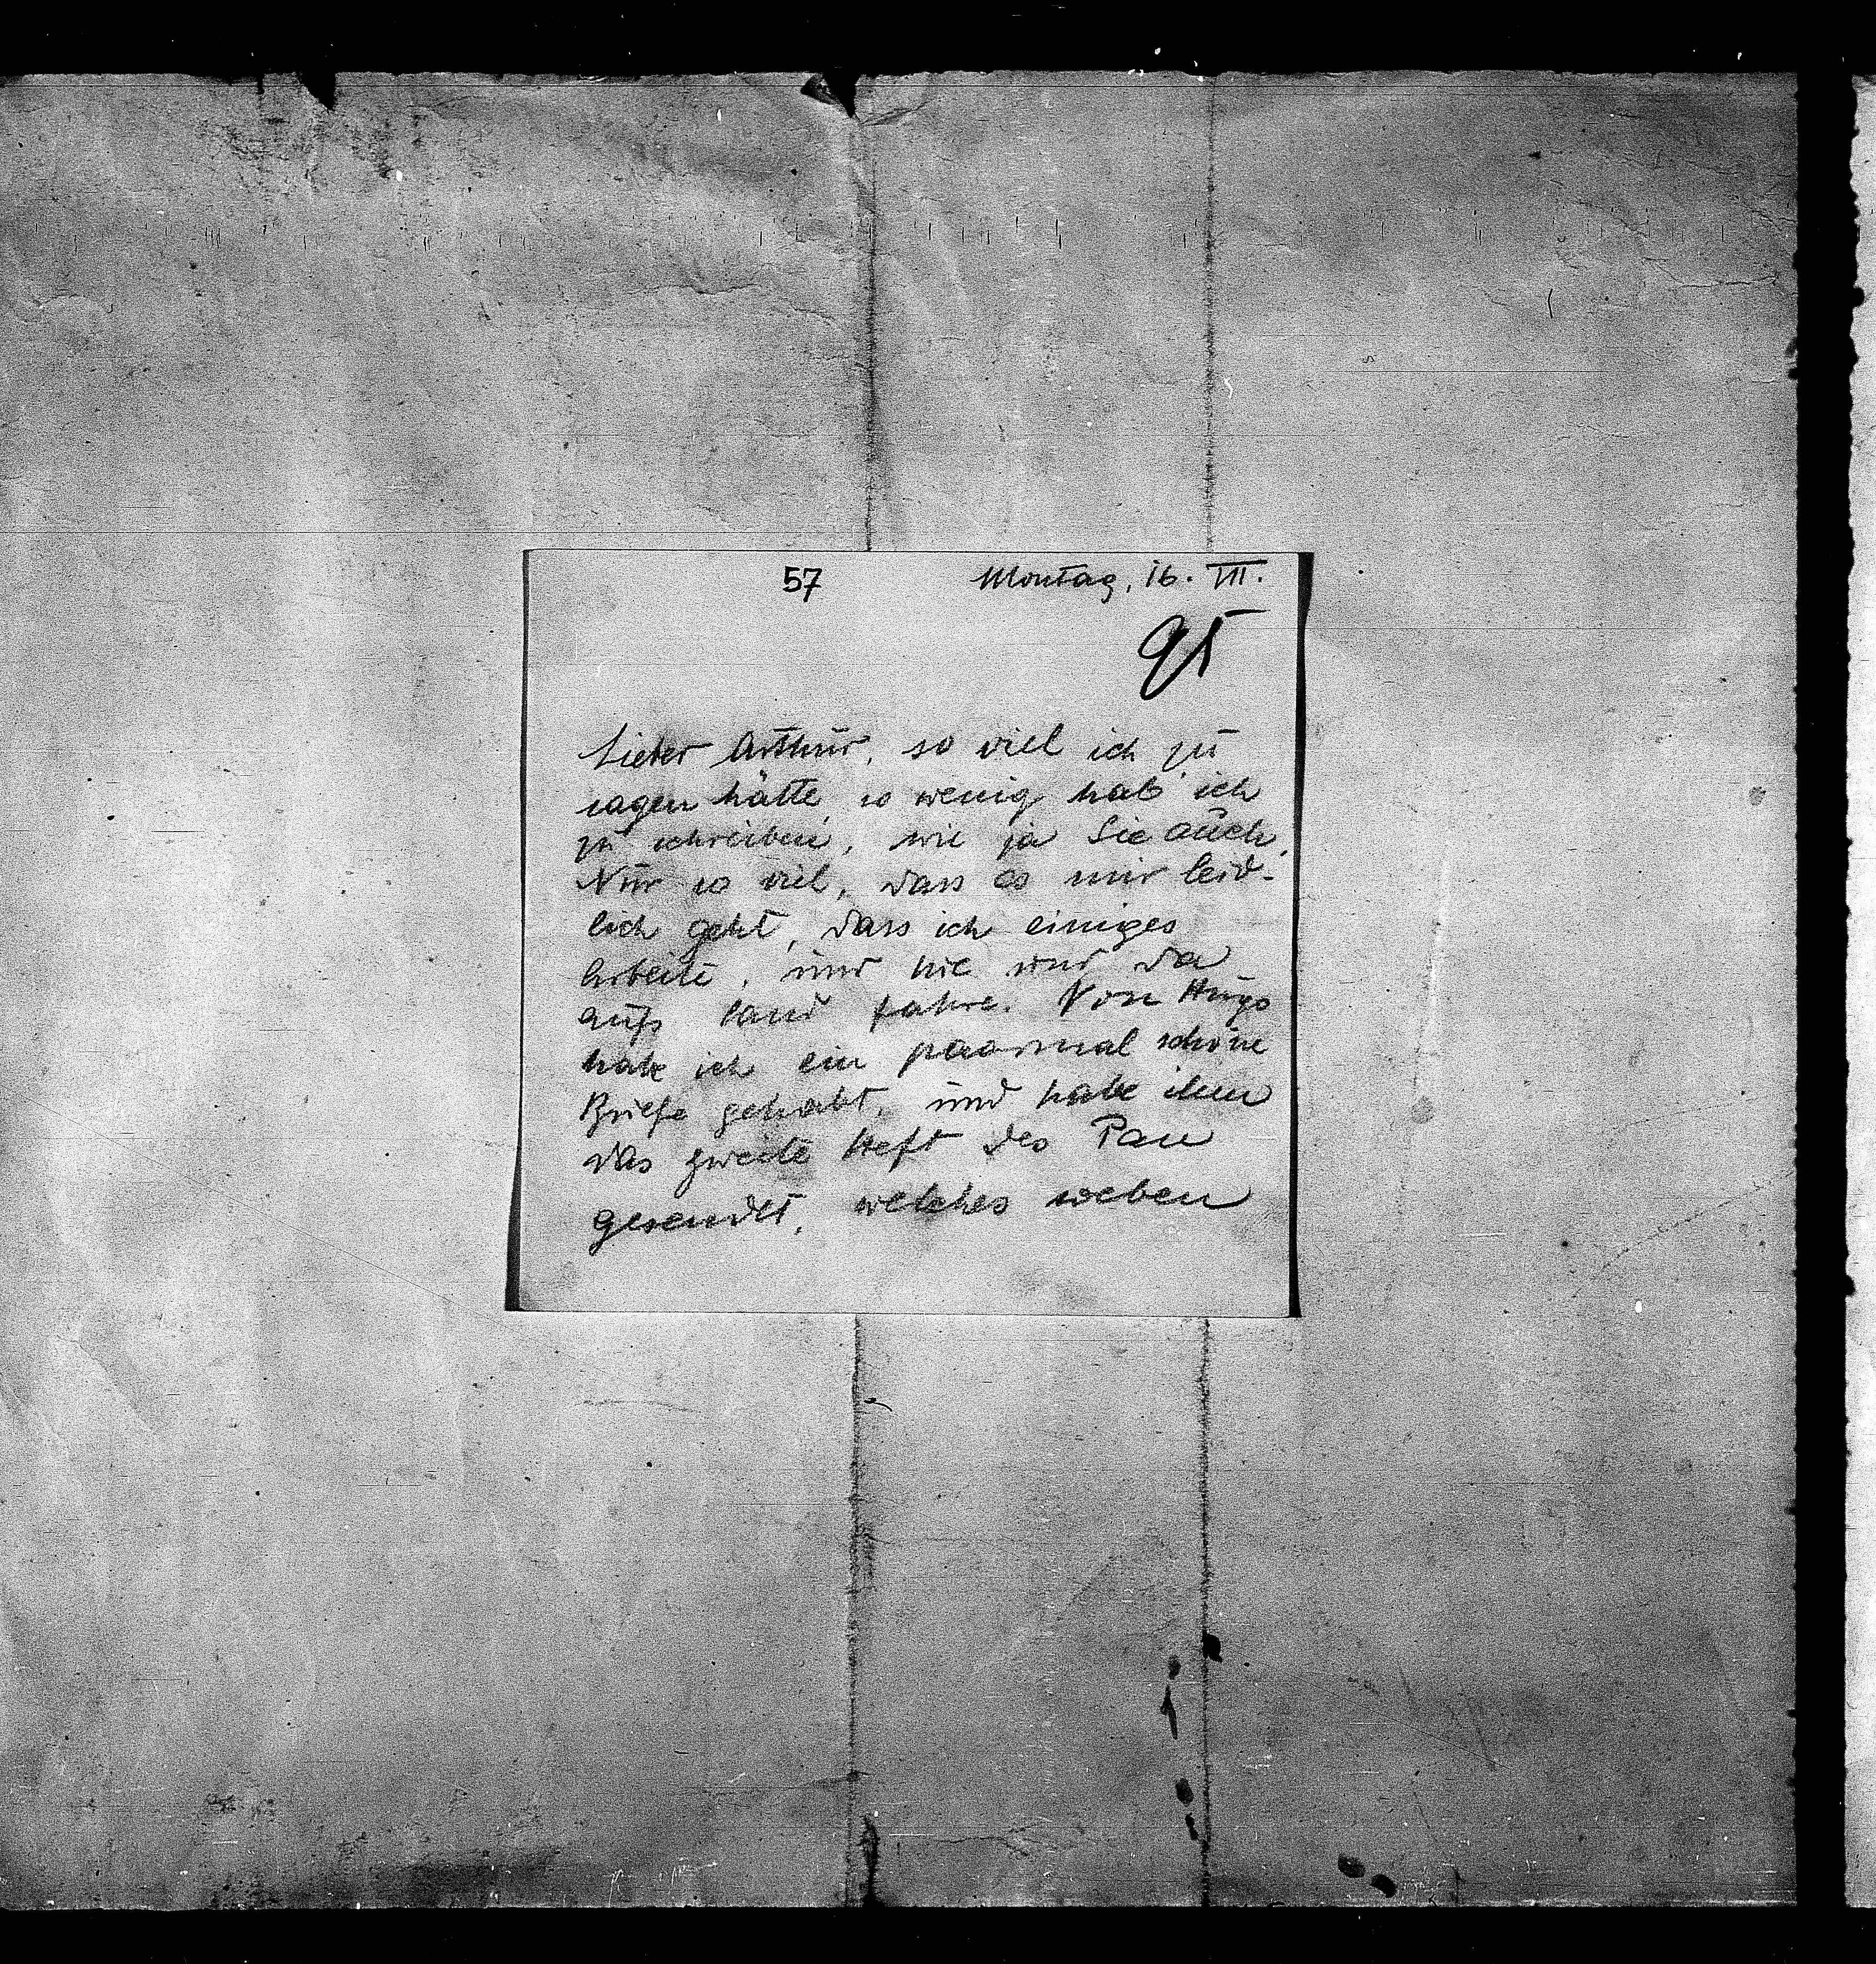 57
Montag, 16. VII.
95
Lieber Arthur, so viel ich zu
sagen hätte, so wenig hab' ich
zu schreiben, wie ja Sie auch.
Nur so viel, dass es mir leid-
lich geht, dass ich einiges
arbeite, und hie und da
aufs Land fahre. Von Hugo
habe ich ein paarmal schöne
Briefe gehabt, und habe ihm
das zweite Heft des Pan
gesendet, welches soeben